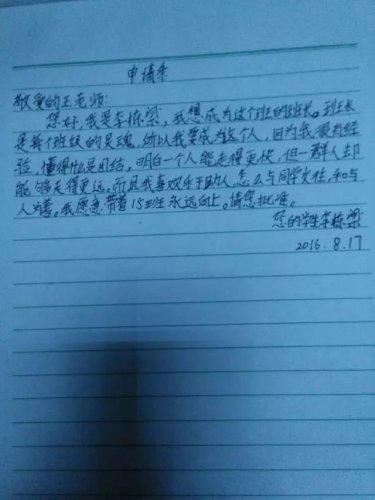 申请书
敬爱的王老师：
您好，我是李栋梁，我想成为这个班的班长。班长
是每个班级的灵魂，所以我要成为这个人，因为我很有经
验，懂得什么是团结，明白一个人能走得更快，但一群人却
能够走得更远。而且我喜欢乐于助人，怎么与同学交往，和与
人为善。我愿意带着15班永远向上。请您批准。
您的学生李栋梁
2016.8.17